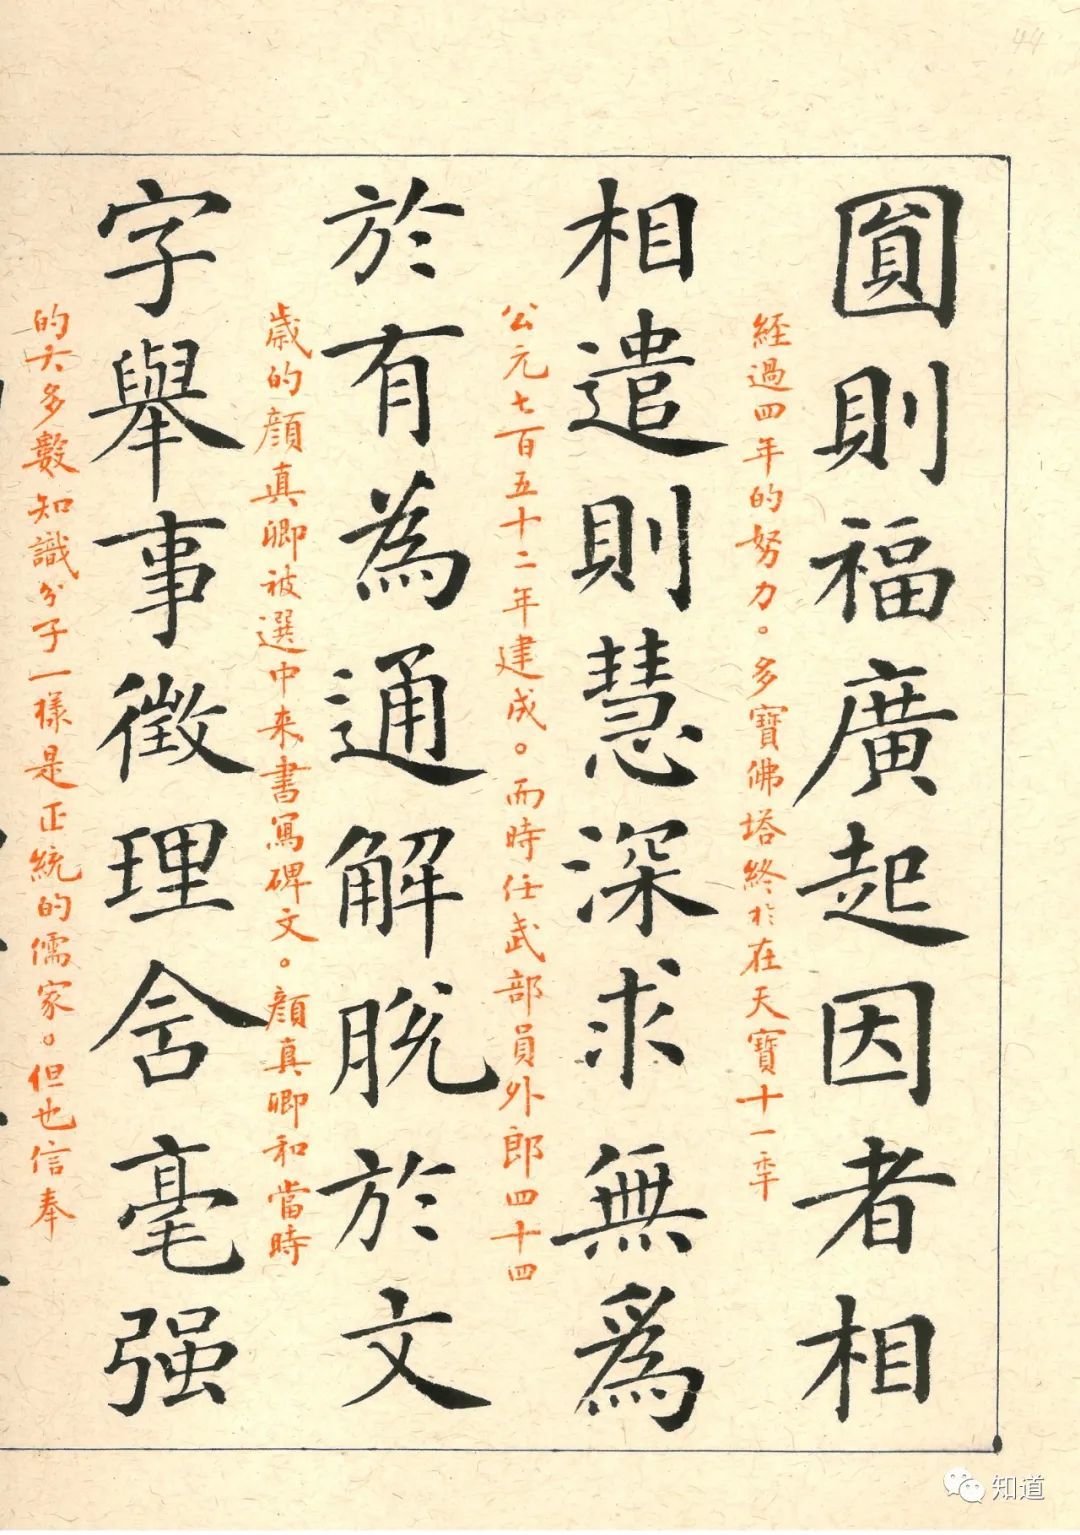 44
圓則福廣起因者相
經過四年的努力。多寶佛塔終於在天寶十一季
相遣則慧深求無爲
公元七百五十二年建成。而時任武部員外郎四十四
於有為通解脱於文
歲的顔真卿被選中来書寫碑文。顔真卿和當時
字舉事徵理含毫强
的大多數知識分子一樣是正統的儒家。但也信奉
知道